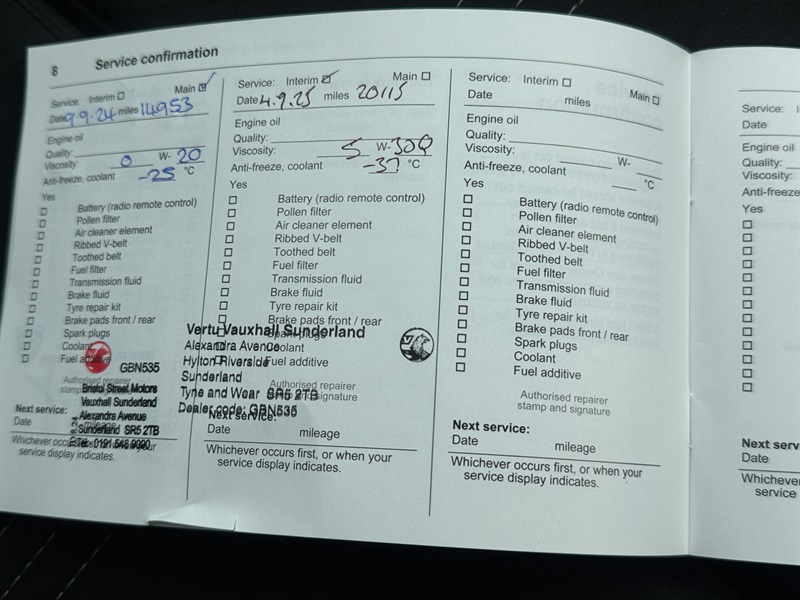 8 Service confirmation
Service: Interim Main
Date 9.9.24 miles 14953
Engine oil
Quality:
Viscosity: 0 W- 20
Anti-freeze, coolant -25 °C
Yes
Battery (radio remote control)
Pollen filter
Air cleaner element
Ribbed V-belt
Toothed belt
Fuel filter
Transmission fluid
Brake fluid
Tyre repair kit
Brake pads front / rear
Spark plugs
Coolant
Fuel additive
GBN535
Authorised repairer
stamp
Bristol Street Motors
Vauxhall Sunderland
Alexandra Avenue
Sunderland SR5 2TB
Tel: 0191 548 9090
Next service:
Date mileage
Whichever occurs your
service display indicates.
Service: Interim Main
Date 4.9.25 miles 20115
Engine oil
Quality:
Viscosity: 5 W-30
Anti-freeze, coolant -37 °C
Yes
Battery (radio remote control)
Pollen filter
Air cleaner element
Ribbed V-belt
Toothed belt
Fuel filter
Transmission fluid
Brake fluid
Tyre repair kit
Brake pads front / rear
Spark plugs
Coolant
Fuel additive
Vertu Vauxhall Sunderland
Alexandra Avenue
Hylton Riverside
Sunderland
Tyne and Wear SR5 2TB
Dealer code: GBN535
Authorised repairer
stamp and signature
Next service:
Date mileage
Whichever occurs first, or when your
service display indicates.
Service: Interim Main
Date miles
Engine oil
Quality:
Viscosity: W-
Anti-freeze, coolant °C
Yes
Battery (radio remote control)
Pollen filter
Air cleaner element
Ribbed V-belt
Toothed belt
Fuel filter
Transmission fluid
Brake fluid
Tyre repair kit
Brake pads front / rear
Spark plugs
Coolant
Fuel additive
Authorised repairer
stamp and signature
Next service:
Date mileage
Whichever occurs first, or when your
service display indicates.
Service: In
Date
Engine oil
Quality:
Viscosity:
Anti-freeze
Yes
Next serv
Date
Whicheve
service